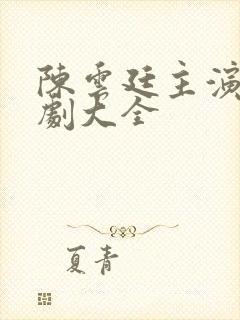 陳雲廷主演
劇大全
夏青